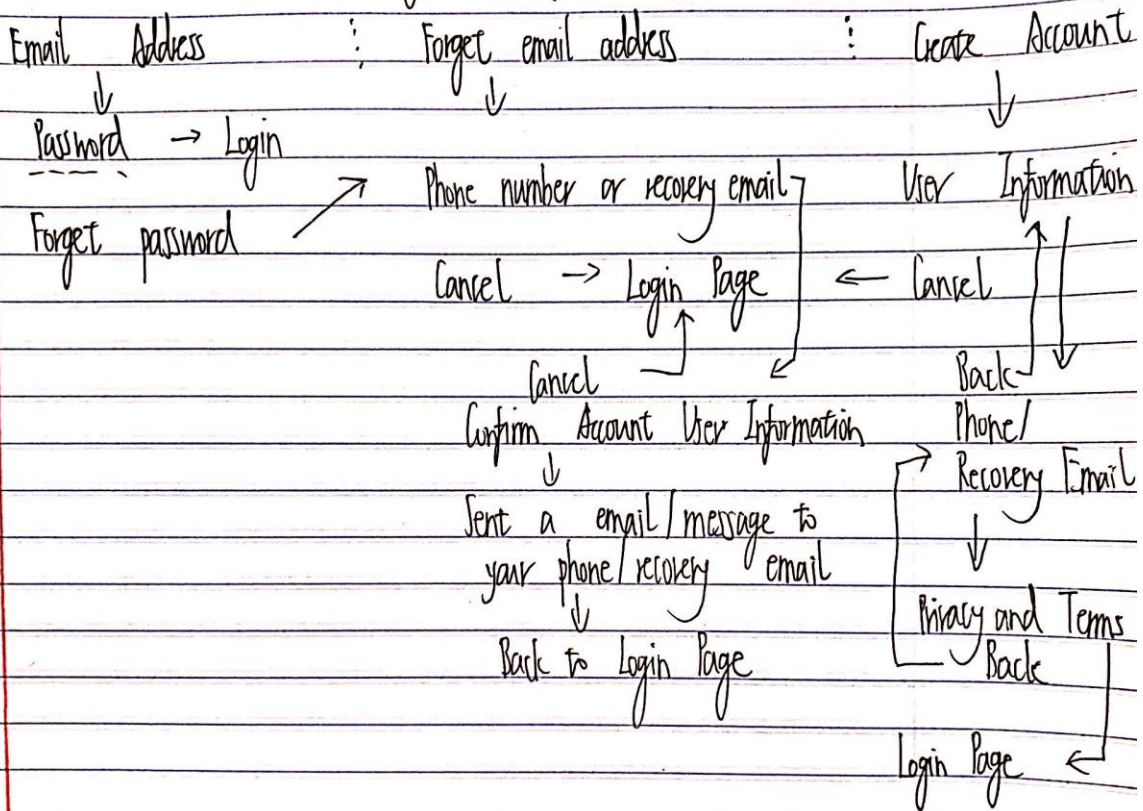 Email Address ⋮ Forget email address ⋮ Create Account
↓ ↓ ↓
Password → Login
Phone number or recovery email User Information
Forget password ↗
Cancel → Login Page ← Cancel
Cancel Back
Confirm Account User Information Phone/
↓ Recovery Email
Sent a email/message to ↓
your phone/recovery email
↓ Privacy and Terms
Back to Login Page Back
Login Page ←